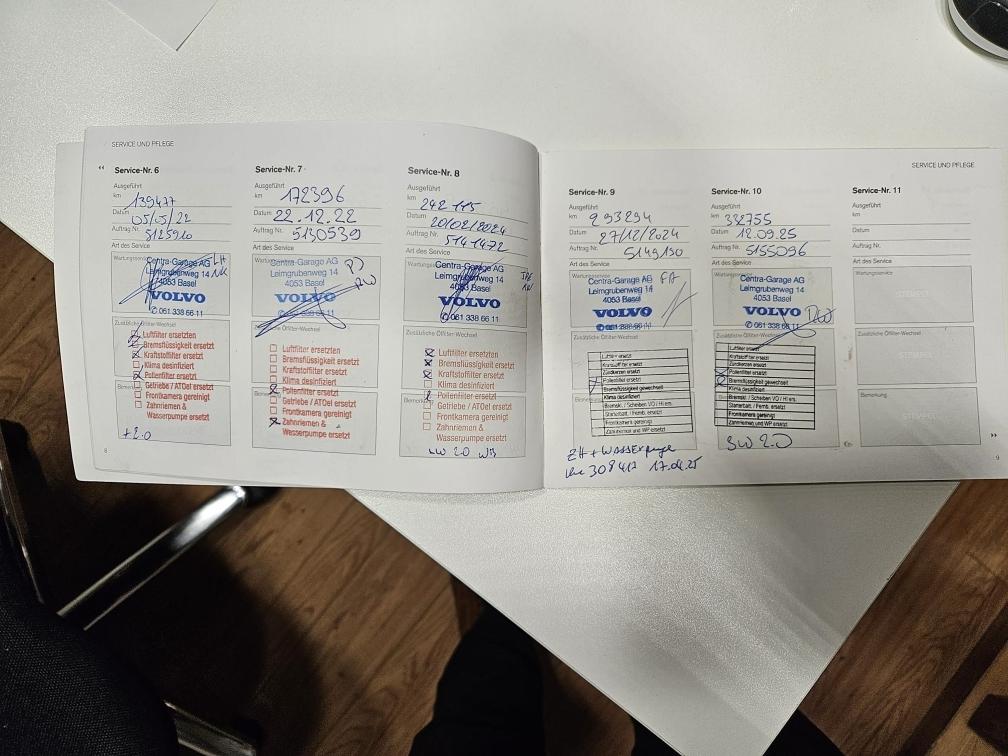 SERVICE UND PFLEGE
Service-Nr. 6
Ausgeführt
km 139477
Datum 05/05/22
Auftrag Nr. 5125910
Art des Service
Centra-Garage AG
Leimgrubenweg 14
4053 Basel
VOLVO
✆ 061 338 66 11
Zusätzliche Ölfilter-Wechsel
Luftfilter ersetzten
Bremsflüssigkeit ersetzt
Kraftstofffilter ersetzt
Klima desinfiziert
Pollenfilter ersetzt
Getriebe / ATOel ersetzt
Frontkamera gereinigt
Zahnriemen &
Wasserpumpe ersetzt
8
Service-Nr. 7
Ausgeführt
km 172396
Datum 22.12.22
Auftrag Nr. 5130539
Art des Service
Centra-Garage AG
Leimgrubenweg 14
4053 Basel
VOLVO
Luftfilter ersetzten
Bremsflüssigkeit ersetzt
Kraftstofffilter ersetzt
Klima desinfiziert
Pollenfilter ersetzt
Getriebe / ATOel ersetzt
Frontkamera gereinigt
Zahnriemen &
Wasserpumpe ersetzt
Service-Nr. 8
Ausgeführt
km 242 115
Datum 20/02/2024
Auftrag Nr. 5141472
Art des Service
Centra-Garage AG
Leimgrubenweg 14
4053 Basel
VOLVO
✆ 061 338 66 11
Zusätzliche Ölfilter-Wechsel
Luftfilter ersetzten
Bremsflüssigkeit ersetzt
Kraftstofffilter ersetzt
Klima desinfiziert
Pollenfilter ersetzt
Getriebe / ATOel ersetzt
Frontkamera gereinigt
Zahnriemen &
Wasserpumpe ersetzt
SERVICE UND PFLEGE
Service-Nr. 9
Ausgeführt
km 293294
Datum 27/12/2024
Auftrag Nr. 5149130
Art des Service
Centra-Garage AG
Leimgrubenweg 14
4053 Basel
VOLVO
✆ 061 338 66 11
FA
Luftfilter ersetzt
Kraftstofffilter ersetzt
Zündkerzen ersetzt
Pollenfilter ersetzt
Bremsflüssigkeit gewechselt
Klima desinfiziert
Bremskl. / Scheiben VO / HI ers.
Starterbatt. / Fernb. ersetzt
Frontkamera gereinigt
Zahnriemen und WP ersetzt
308417 17.04.25
Service-Nr. 10
Ausgeführt
km
Datum 12.09.25
Auftrag Nr. 5155096
Art des Service
Centra-Garage AG
Leimgrubenweg 14
4053 Basel
VOLVO
✆ 061 338 66 11
Luftfilter ersetzt
Kraftstofffilter ersetzt
Zündkerzen ersetzt
Pollenfilter ersetzt
Bremsflüssigkeit gewechselt
Klima desinfiziert
Bremskl. / Scheiben VO / HI ers.
Starterbatt. / Fernb. ersetzt
Frontkamera gereinigt
Zahnriemen und WP ersetzt
SW 2.0
Service-Nr. 11
Ausgeführt
km
Datum
Auftrag Nr.
Art des Service
Wartungsservice
Zusätzliche Ölfilter-Wechsel
Bemerkung
9